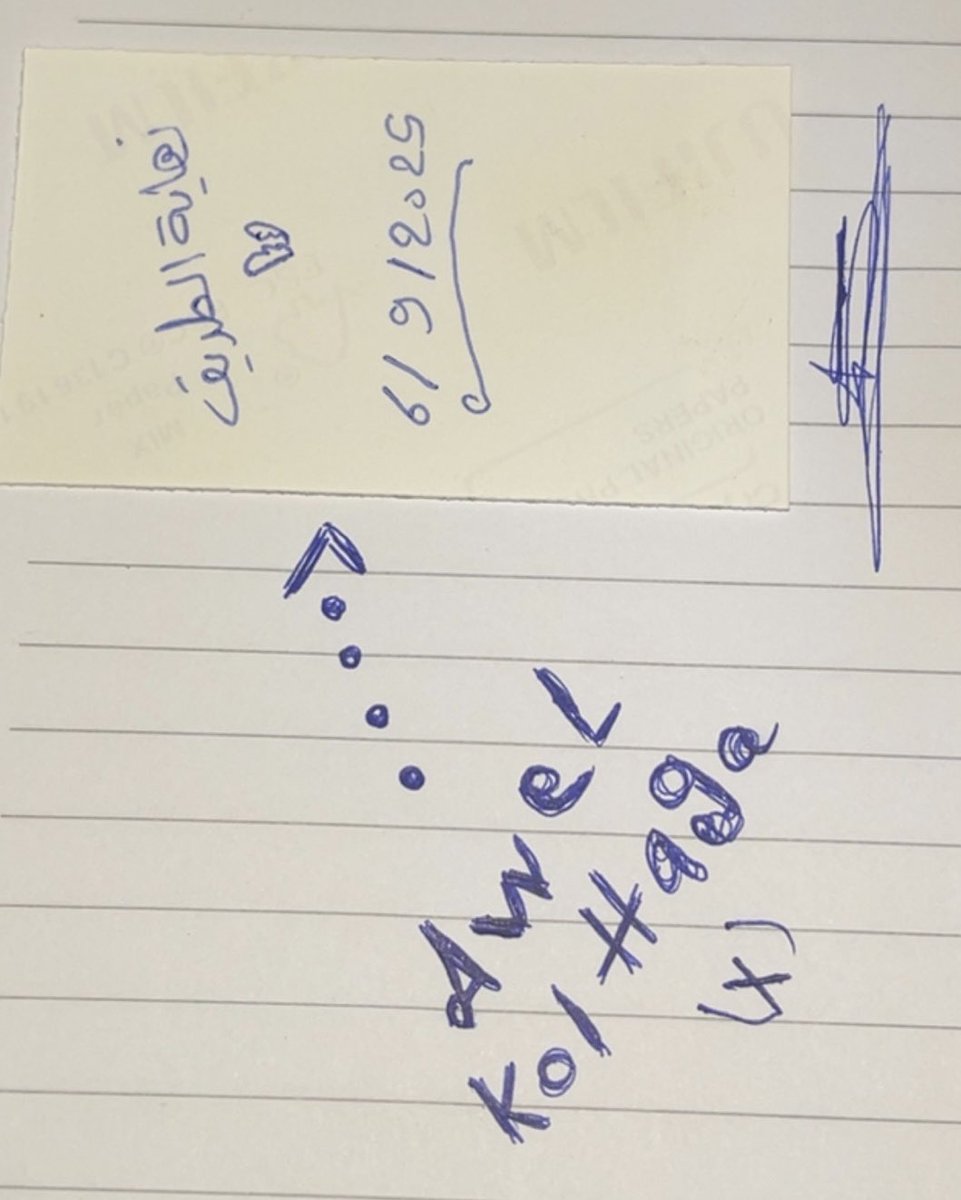 نهاية الطريق
9/6/2025
AweL
Kol Hagga
(x)